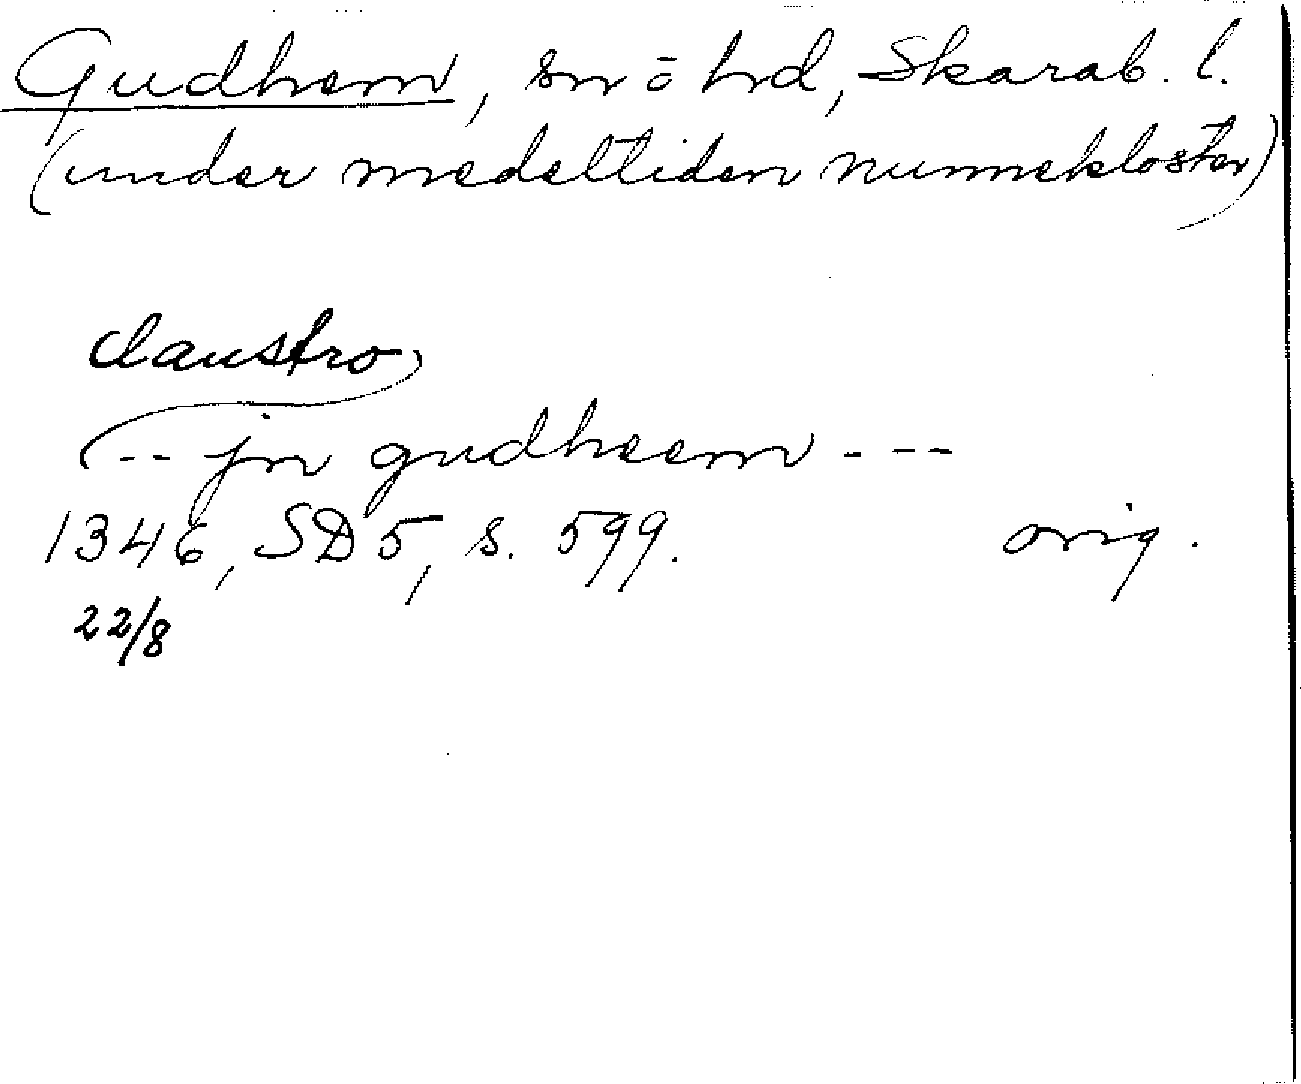 Gudhem, sn o hd, Skarab. l.
(under medeltiden nunnekloster)
claustro
-- jn gudheem ---
1346, SD 5, s. 599. orig.
22/8